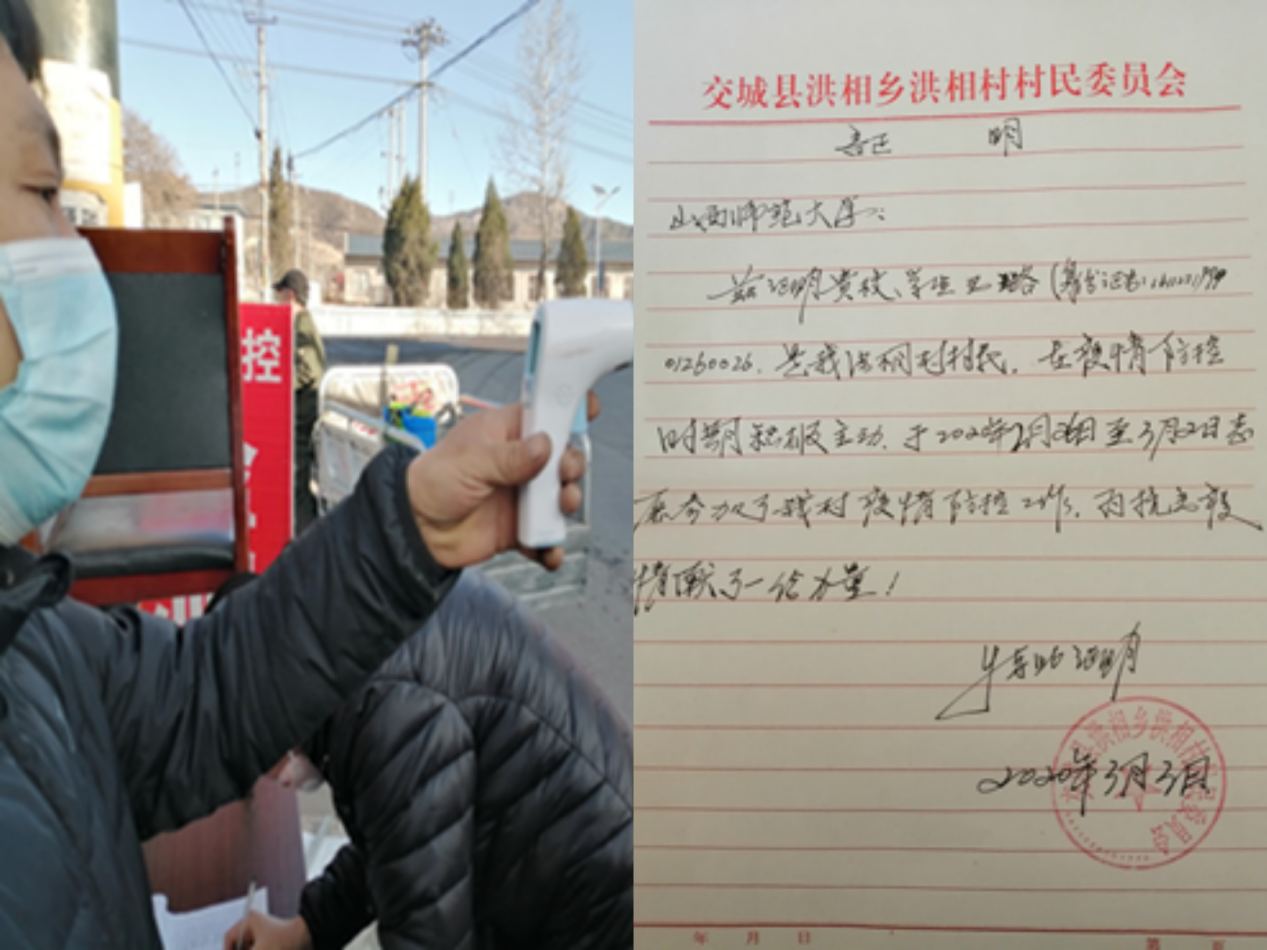 控
交城县洪相乡洪相村村民委员会
证 明
山西师范大学:
兹证明贵校学生 路(身份证号:
01260026.是我洪相村村民.在疫情防控
时期积极主动.于2020年2月 日至3月2日志
愿参加了我村疫情防控工作,为抗击疫
情献了一份力量!
特此证明
2020年3月3日
交城县洪相乡洪相村村民委员会
年 月 日
第 页